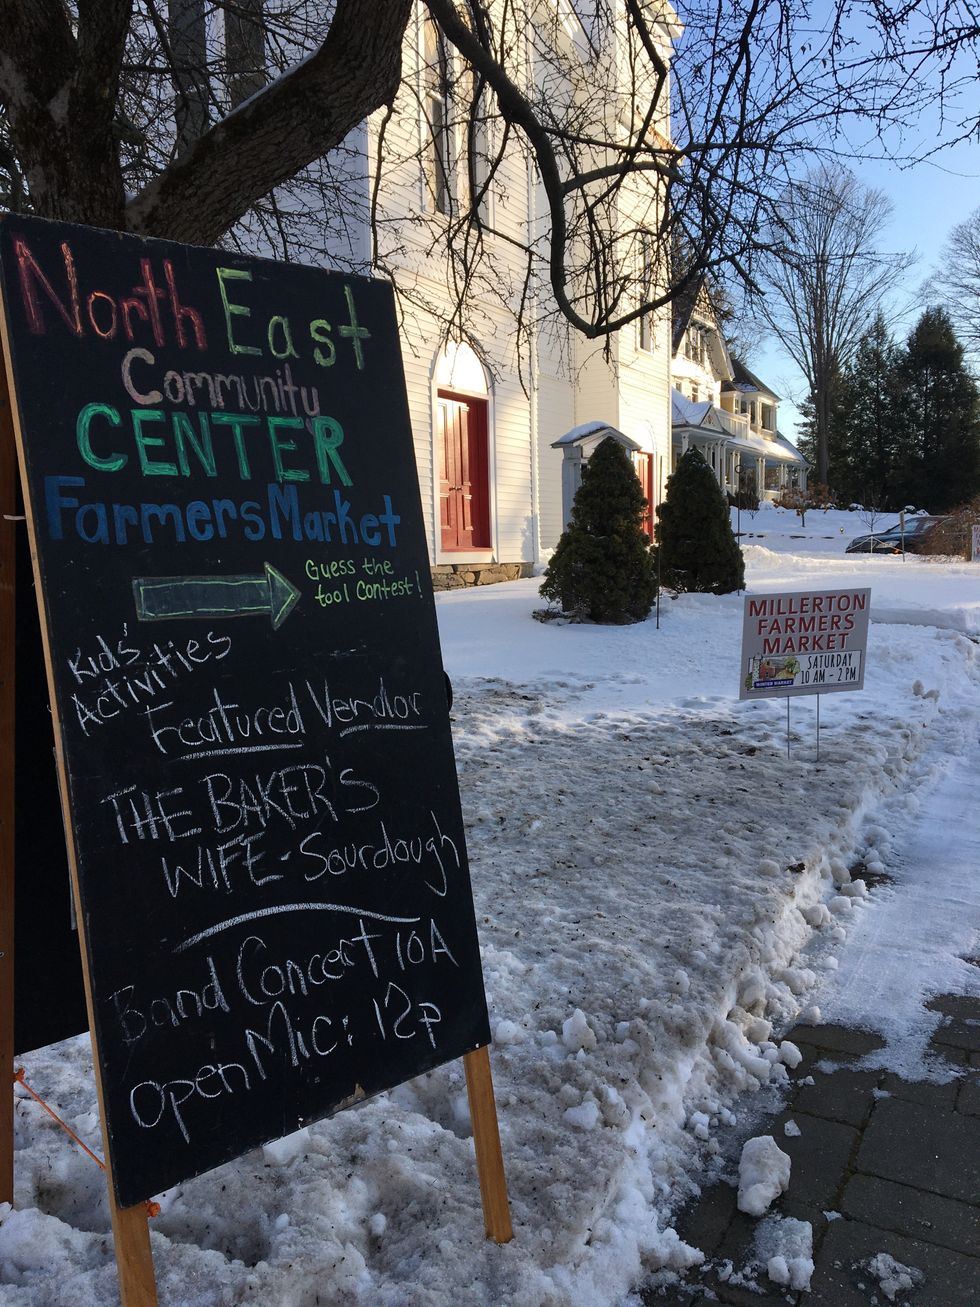 North East
Community
CENTER
Farmers Market
Guess the
tool Contest!
Kid's
Activities
Featured Vendor
THE BAKER'S
WIFE - Sourdough
Band Concert 10A
Open Mic: 12p
MILLERTON
FARMERS
MARKET
SATURDAY
10 AM - 2 PM
WINTER MARKET